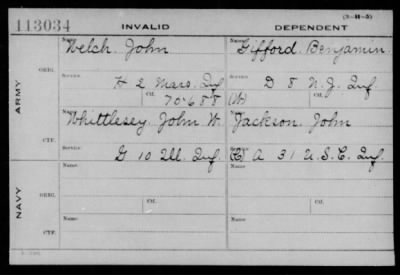 113034 INVALID DEPENDENT (3-M-5)
ARMY
ORIG.
Name Welch. John Name Gifford. Benjamin.
Service H 2 Mass. Inf Service D 8 N.J. Inf.
Ctf. 70.688 Ctf. (W)
CTF.
Name Whittlesey. John W. Name Jackson. John
Service G 10 Ill. Inf. Service A 31 U.S.C. Inf.
NAVY
ORIG.
Name Name
Service Ctf. Service Ctf.
CTF.
Name Name